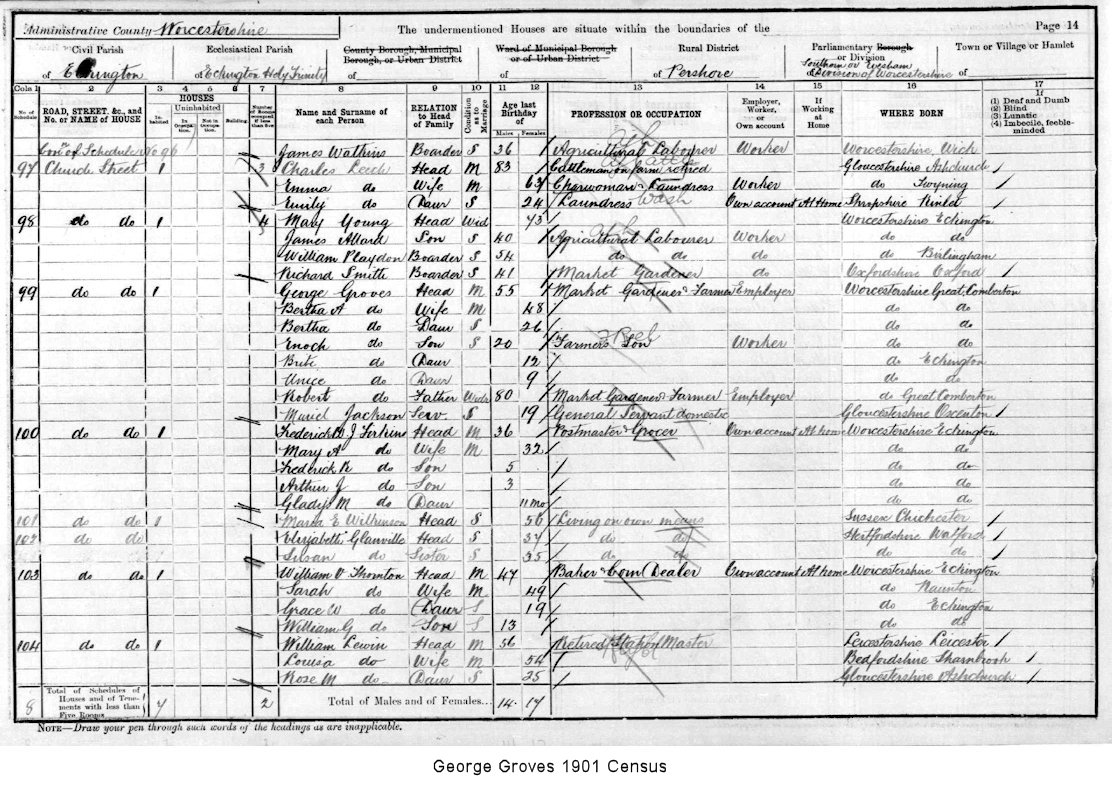 Administrative County Worcestershire
The undermentioned Houses are situate within the boundaries of the
Page 14
Civil Parish of Eckington
Ecclesiastical Parish of Eckington Holy Trinity
County Borough, Municipal Borough, or Urban District of
Ward of Municipal Borough or of Urban District of
Rural District of Pershore
Parliamentary Borough or Division of Southern or Evesham Division of Worcestershire
Town or Village or Hamlet of
Cols 1 2 3 4 5 6 7 8 9 10 11 12 13 14 15 16 17
No. of Schedule
ROAD, STREET, &c., and No. or NAME of HOUSE
HOUSES
Inhabited
Uninhabited
In Occupation.
Not in Occupation.
Building.
Number of Rooms occupied if less than five
Name and Surname of each Person
RELATION to Head of Family
Condition as to Marriage
Age last Birthday of
Males
Females
PROFESSION OR OCCUPATION
Employer, Worker, or Own account
If Working at Home
WHERE BORN
If
(1) Deaf and Dumb
(2) Blind
(3) Lunatic
(4) Imbecile, feeble-minded
Conn of Schedule No 96 James Watkins Boarder S 36 Agricultural Labourer Worker Worcestershire Wick
97 Church Street 1 3 Charles Leech Head M 83 Cattleman on farm retired Gloucestershire Ashchurch
Emma do Wife M 63 Charwoman & Laundress Worker do Twyning
Emily do Daur S 24 Laundress Wash Own account At Home Shropshire Kinlet
98 do do 1 4 Mary Young Head Wid 73 Worcestershire Eckington
James Allard Son S 40 Agricultural Labourer Worker do do
William Playdon Boarder S 54 do do do do Birlingham
Richard Smith Boarder S 41 Market Gardener do Oxfordshire Oxford
99 do do 1 George Groves Head M 55 Market Gardener & Farmer Employer Worcestershire Great Comberton
Bertha A do Wife M 48 do do
Bertha do Daur S 26 do do
Enoch do Son S 20 Farmers Son Worker do do
Brite do Daur 12 do Eckington
Unice do Daur 9 do do
Robert do Father Widr 80 Market Gardener & Farmer Employer do Great Comberton
Muriel Jackson Serv S 19 General Servant domestic Gloucestershire Oxenton
100 do do 1 Frederick W J Firkins Head M 36 Postmaster & Grocer Own account At home Worcestershire Eckington
Mary A do Wife M 32 do do
Frederick R do Son 5 do do
Arthur J do Son 3 do do
Gladys M do Daur 11 mo do do
101 do do 1 Maria E Wilkinson Head S 56 Living on own means Sussex Chichester
102 do do Elizabeth Glanville Head S 37 do do Hertfordshire Watford
Susan do Sister S 35 do do do do
103 do do 1 William V Thornton Head M 47 Baker & Corn Dealer Own account At home Worcestershire Eckington
Sarah do Wife M 49 do Naunton
Grace W do Daur S 19 do Eckington
William G do Son S 13 do do
104 do do 1 William Lewin Head M 56 Retired Station Master Leicestershire Leicester
Louisa do Wife M 54 Bedfordshire Sharnbrook
Rose M do Daur S 25 Gloucestershire Ashchurch
8 Total of Schedules of Houses and of Tenements with less than Five Rooms 7 2 Total of Males and of Females... 14 17
NOTE—Draw your pen through such words of the headings as are inapplicable.
George Groves 1901 Census